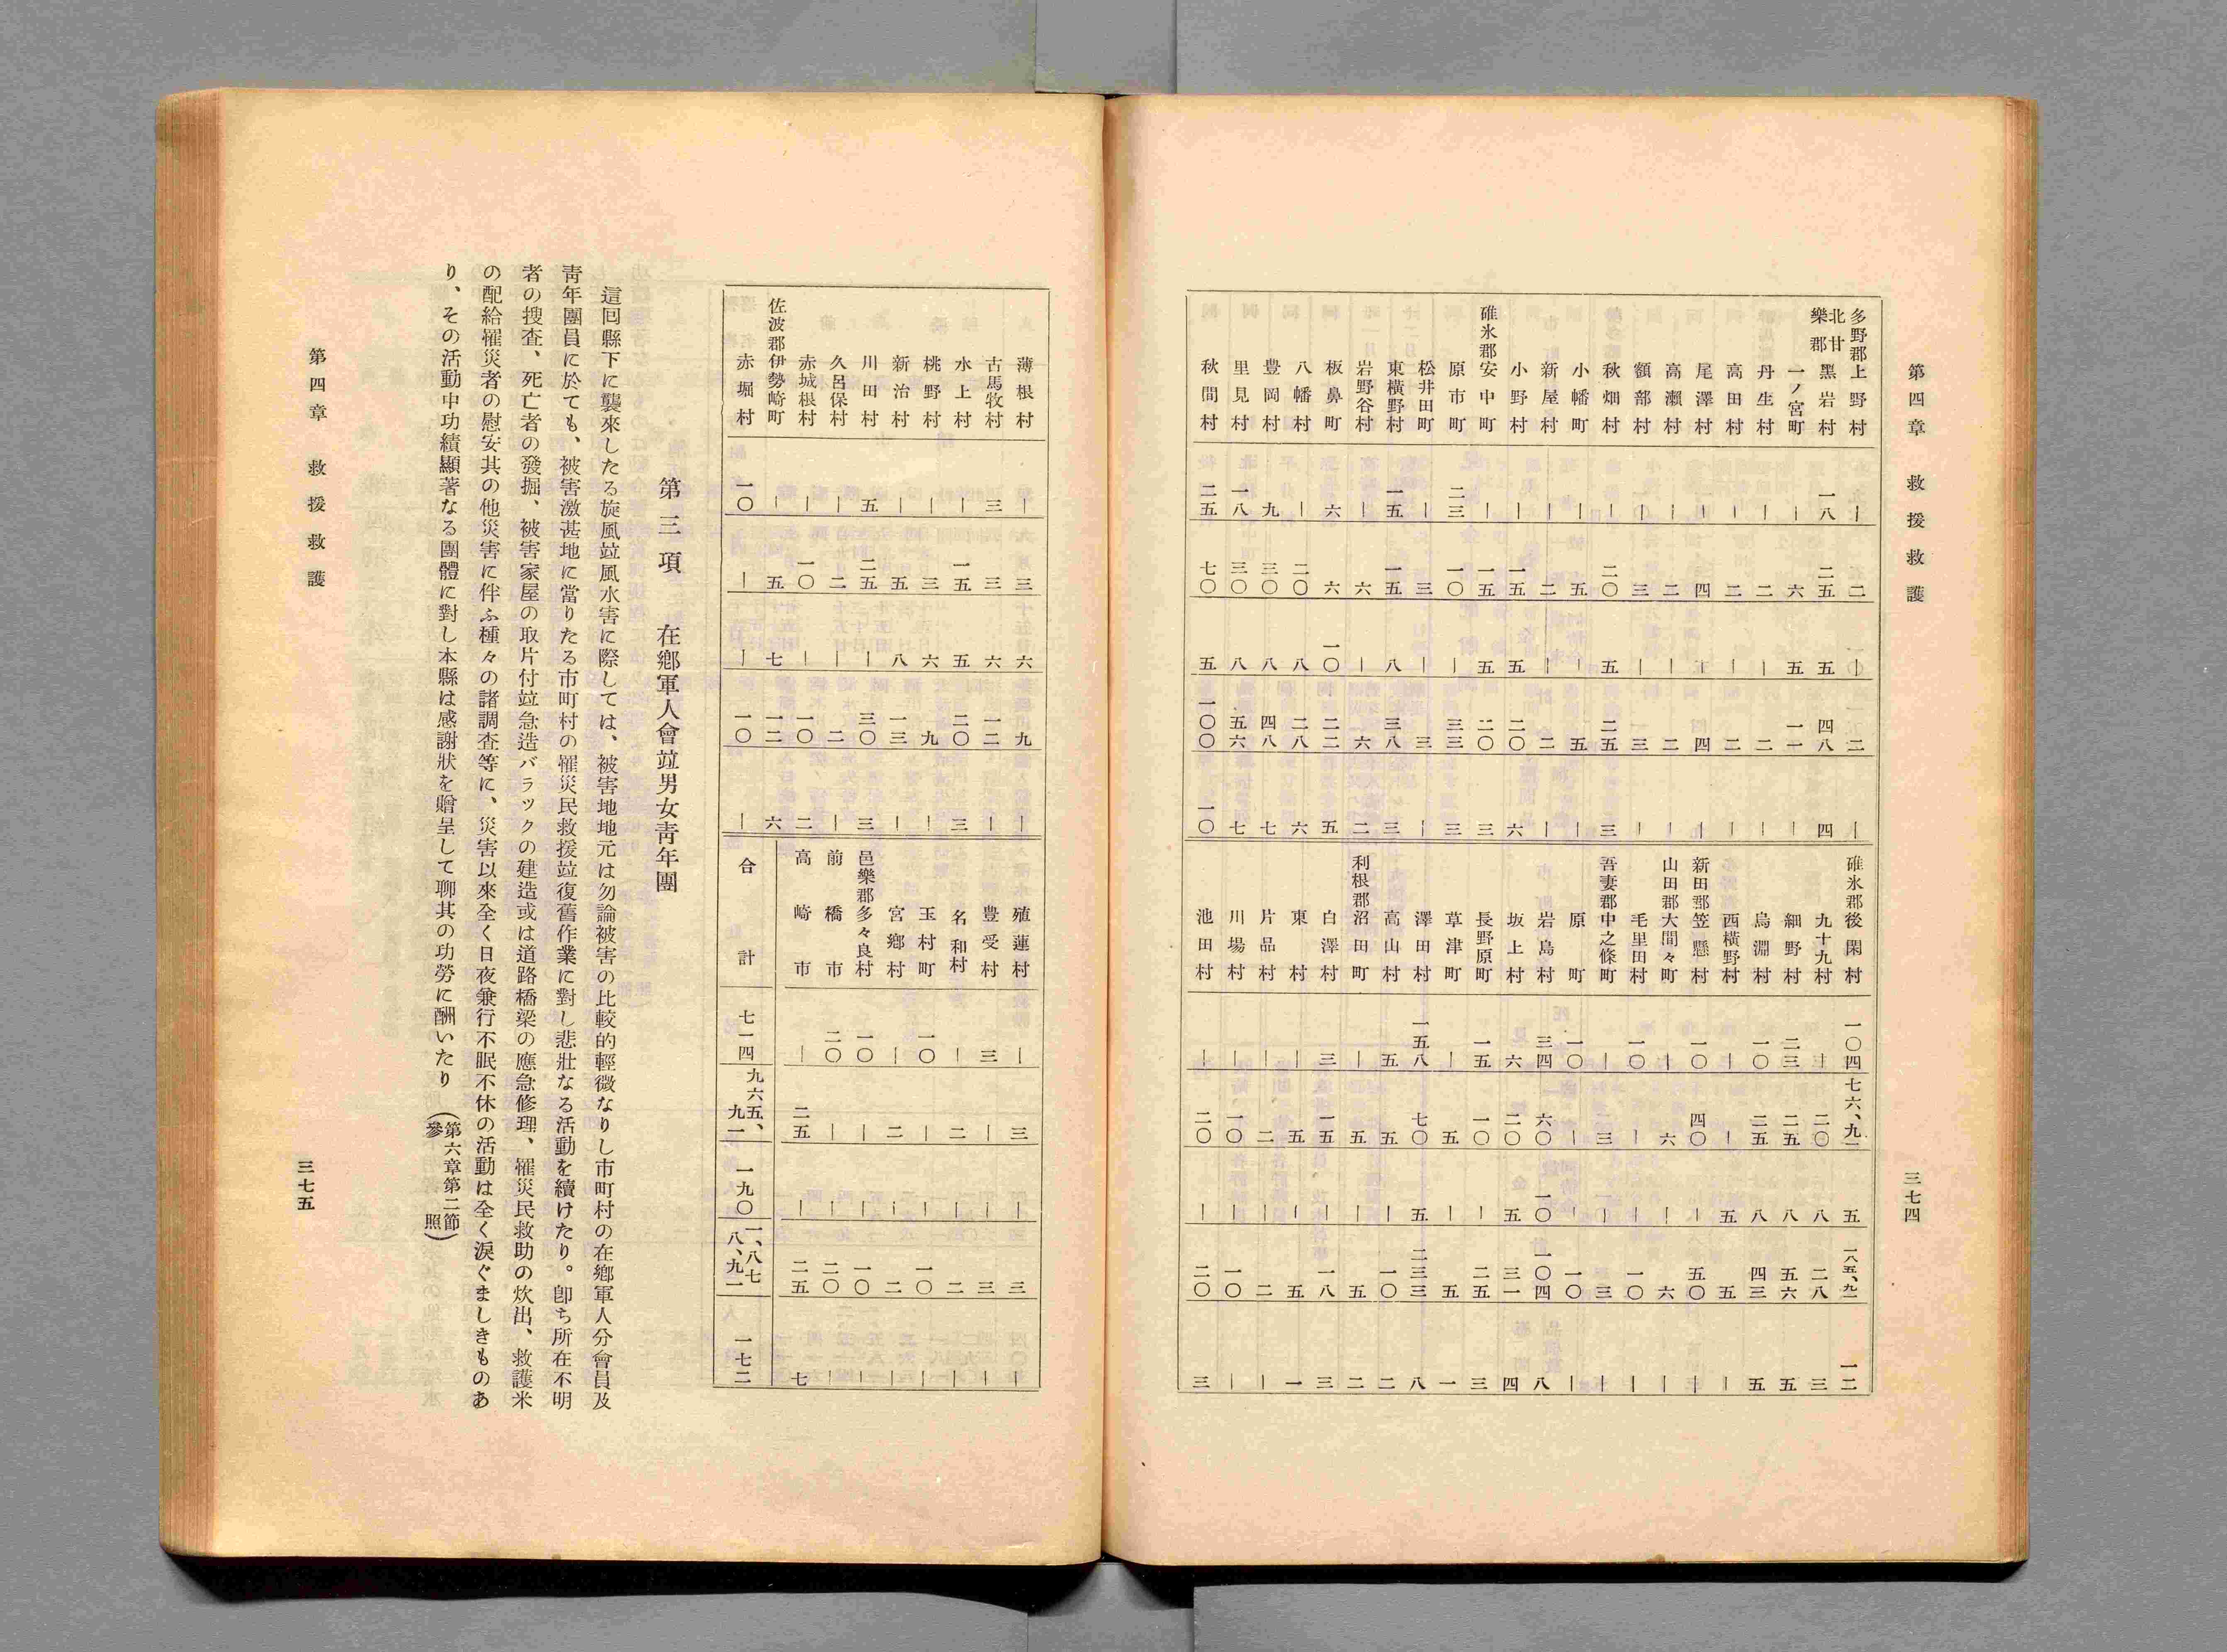 第四章 救援救護 三七四
多野郡上野村 ｜ 二 ｜ 二 ｜
北甘樂郡黒岩村 一八 二五 五 四八 四
一ノ宮町 ｜ 六 五 一一 ｜
丹生村 ｜ 二 ｜ 二 ｜
高田村 ｜ 二 ｜ 二 ｜
尾澤村 ｜ 四 ｜ 四 ｜
高瀬村 ｜ 二 ｜ 二 ｜
額部村 ｜ 三 ｜ 三 ｜
秋畑村 ｜ 二〇 五 二五 三
小幡町 ｜ 五 ｜ 五 ｜
新屋村 ｜ 二 ｜ 二 ｜
小野村 ｜ 一五 五 二〇 六
碓氷郡安中町 ｜ 一五 五 二〇 三
原市町 二三 一〇 ｜ 三三 三
松井田町 ｜ 三 ｜ 三 ｜
東横野村 一五 一五 八 三八 三
岩野谷村 ｜ 六 ｜ 六 二
板鼻町 六 六 一〇 二二 五
八幡村 ｜ 二〇 八 二八 六
豊岡村 九 三〇 八 四八 七
里見村 一八 三〇 八 五六 七
秋間村 二五 七〇 五 一〇〇 一〇
碓氷郡後閑村 一〇四 七六、九一 五 一八五、九一 一二
九十九村 ｜ 二〇 八 二八 三
細野村 二三 二五 八 五六 五
烏淵村 一〇 二五 八 四三 五
西横野村 ｜ ｜ 五 五 ｜
新田郡笠懸村 一〇 四〇 ｜ 五〇 ｜
山田郡大間々町 ｜ 六 ｜ 六 ｜
毛里田村 一〇 ｜ ｜ 一〇 ｜
吾妻郡中之條町 ｜ 三 ｜ 三 ｜
原町 一〇 ｜ ｜ 一〇 ｜
岩島村 三四 六〇 一〇 一〇四 八
坂上村 六 二〇 五 三一 四
長野原町 一五 一〇 ｜ 二五 三
草津町 ｜ 五 ｜ 五 一
澤田村 一五八 七〇 五 二三三 八
高山村 五 五 ｜ 一〇 二
利根郡沼田町 ｜ 五 ｜ 五 二
白澤村 三 一五 ｜ 一八 三
東村 ｜ 五 ｜ 五 一
片品村 ｜ 二 ｜ 二 ｜
川場村 ｜ 一〇 ｜ 一〇 ｜
池田村 ｜ 二〇 ｜ 二〇 三
薄根村 ｜ 三 六 九 ｜
古馬牧村 三 三 六 一二 ｜
水上村 ｜ 一五 五 二〇 三
桃野村 ｜ 三 六 九 ｜
新治村 ｜ 五 八 一三 ｜
川田村 五 二五 ｜ 三〇 三
久呂保村 ｜ 二 ｜ 二 ｜
赤城根村 ｜ 一〇 ｜ 一〇 二
佐波郡伊勢崎町 ｜ 五 七 一二 六
赤堀村 一〇 ｜ ｜ 一〇 ｜
殖蓮村 ｜ 三 ｜ 三 ｜
豊受村 三 ｜ ｜ 三 ｜
名和村 ｜ 二 ｜ 二 ｜
玉村町 一〇 ｜ ｜ 一〇 ｜
宮郷村 ｜ 二 ｜ 二 ｜
邑樂郡多々良村 一〇 ｜ ｜ 一〇 ｜
前橋市 二〇 ｜ ｜ 二〇 ｜
高崎市 ｜ 二五 ｜ 二五 七
合計 七一四 九六五、九一 一九〇 一、八七八、九一 一七二
第三項 在鄕軍人會竝男女靑年團
這回縣下に襲來したる旋風竝風水害に際しては、被害地地元は勿論被害の比較的輕微なりし市町村の在鄕軍人分會員及
靑年團員に於ても、被害激甚地に當りたる市町村の罹災民救援竝復舊作業に對し悲壯なる活動を續けたり。卽ち所在不明
者の搜查、死亡者の發掘、被害家屋の取片付竝急造バラックの建造或は道路橋梁の應急修理、罹災民救助の炊出、救護米
の配給罹災者の慰安其の他災害に伴ふ種々の諸調査等に、災害以來全く日夜兼行不眠不休の活動は全く淚ぐましきものあ
り、その活動中功績顯著なる團體に對し本縣は感謝狀を贈呈して聊其の功勞に酬いたり（第六章第二節參照）
第四章 救援救護 三七五